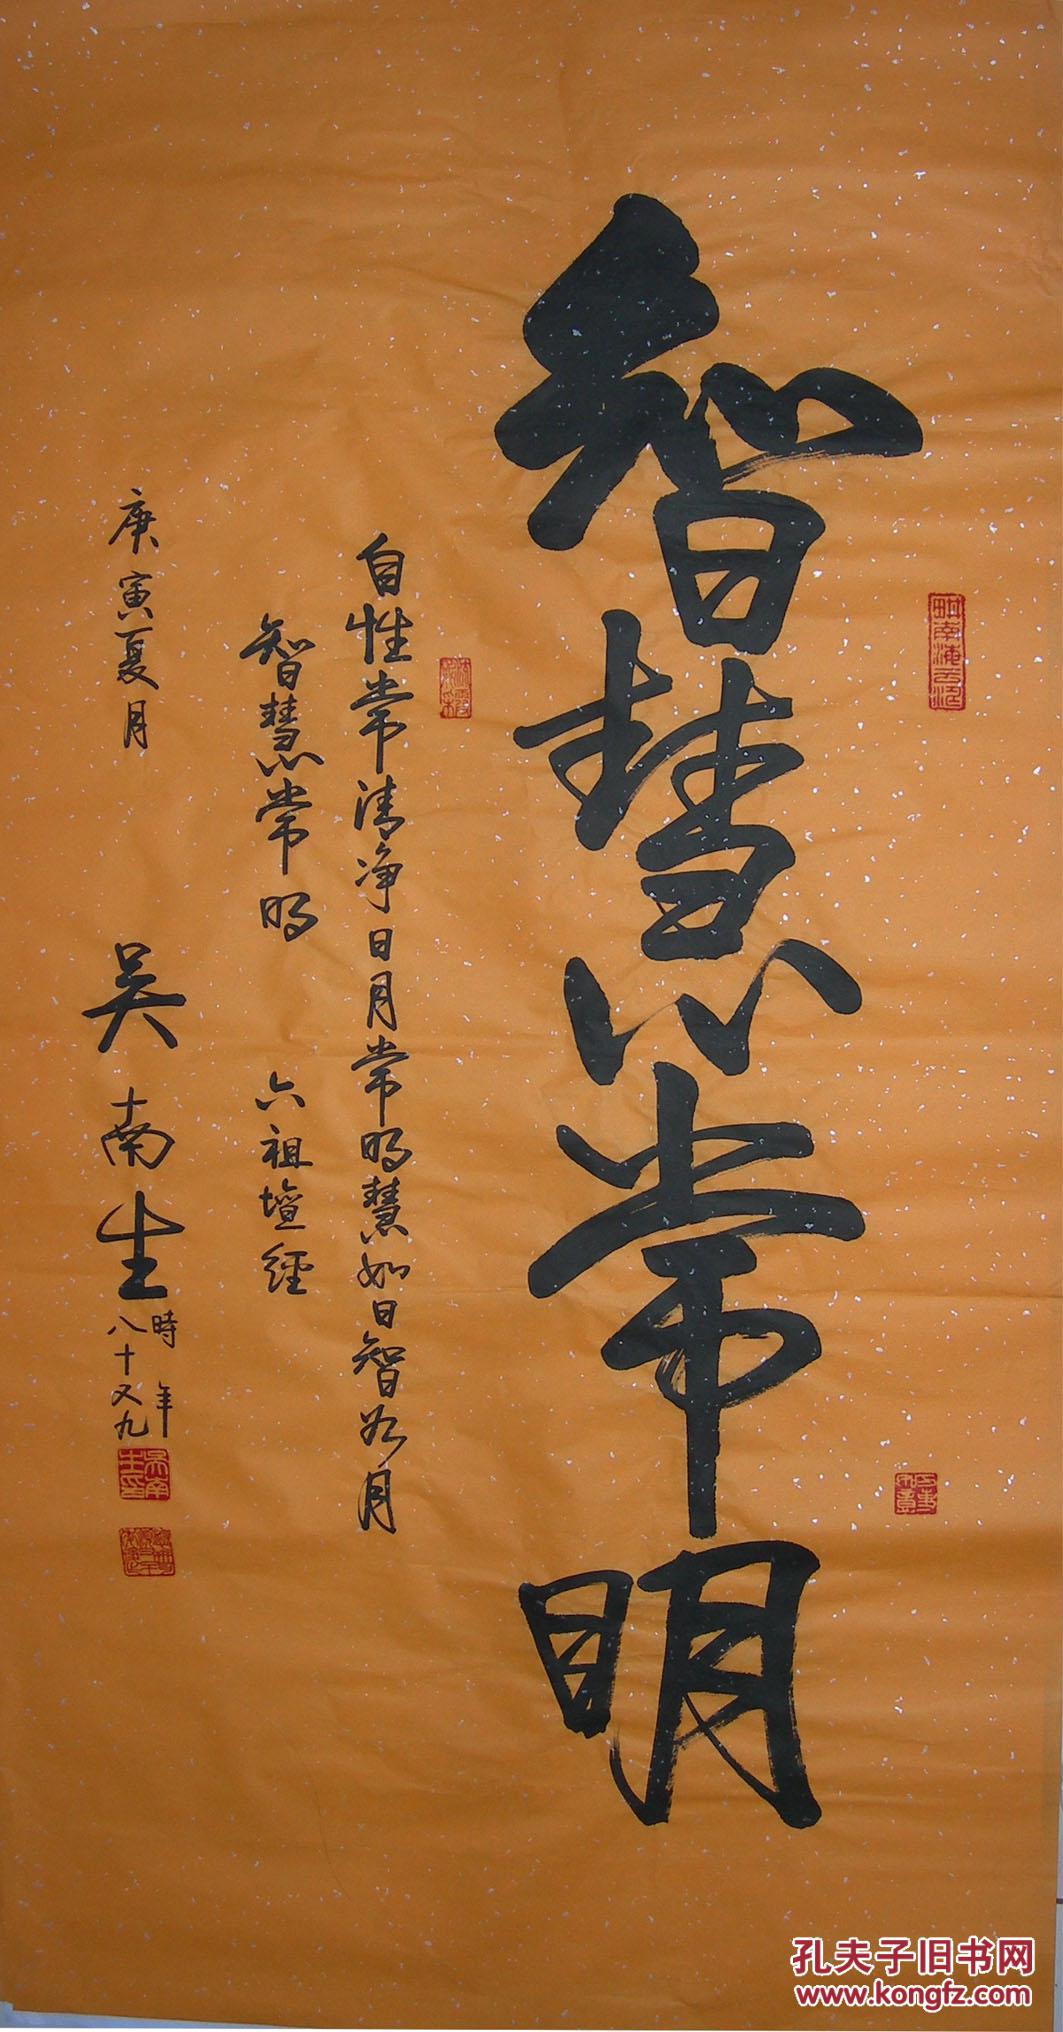 智慧常明
自性常清净日月常明慧如日智如月
智慧常明 六祖壇經
庚寅夏月 吴南生 時年八十又九
吴南生印
孔夫子旧书网
www.kongfz.com